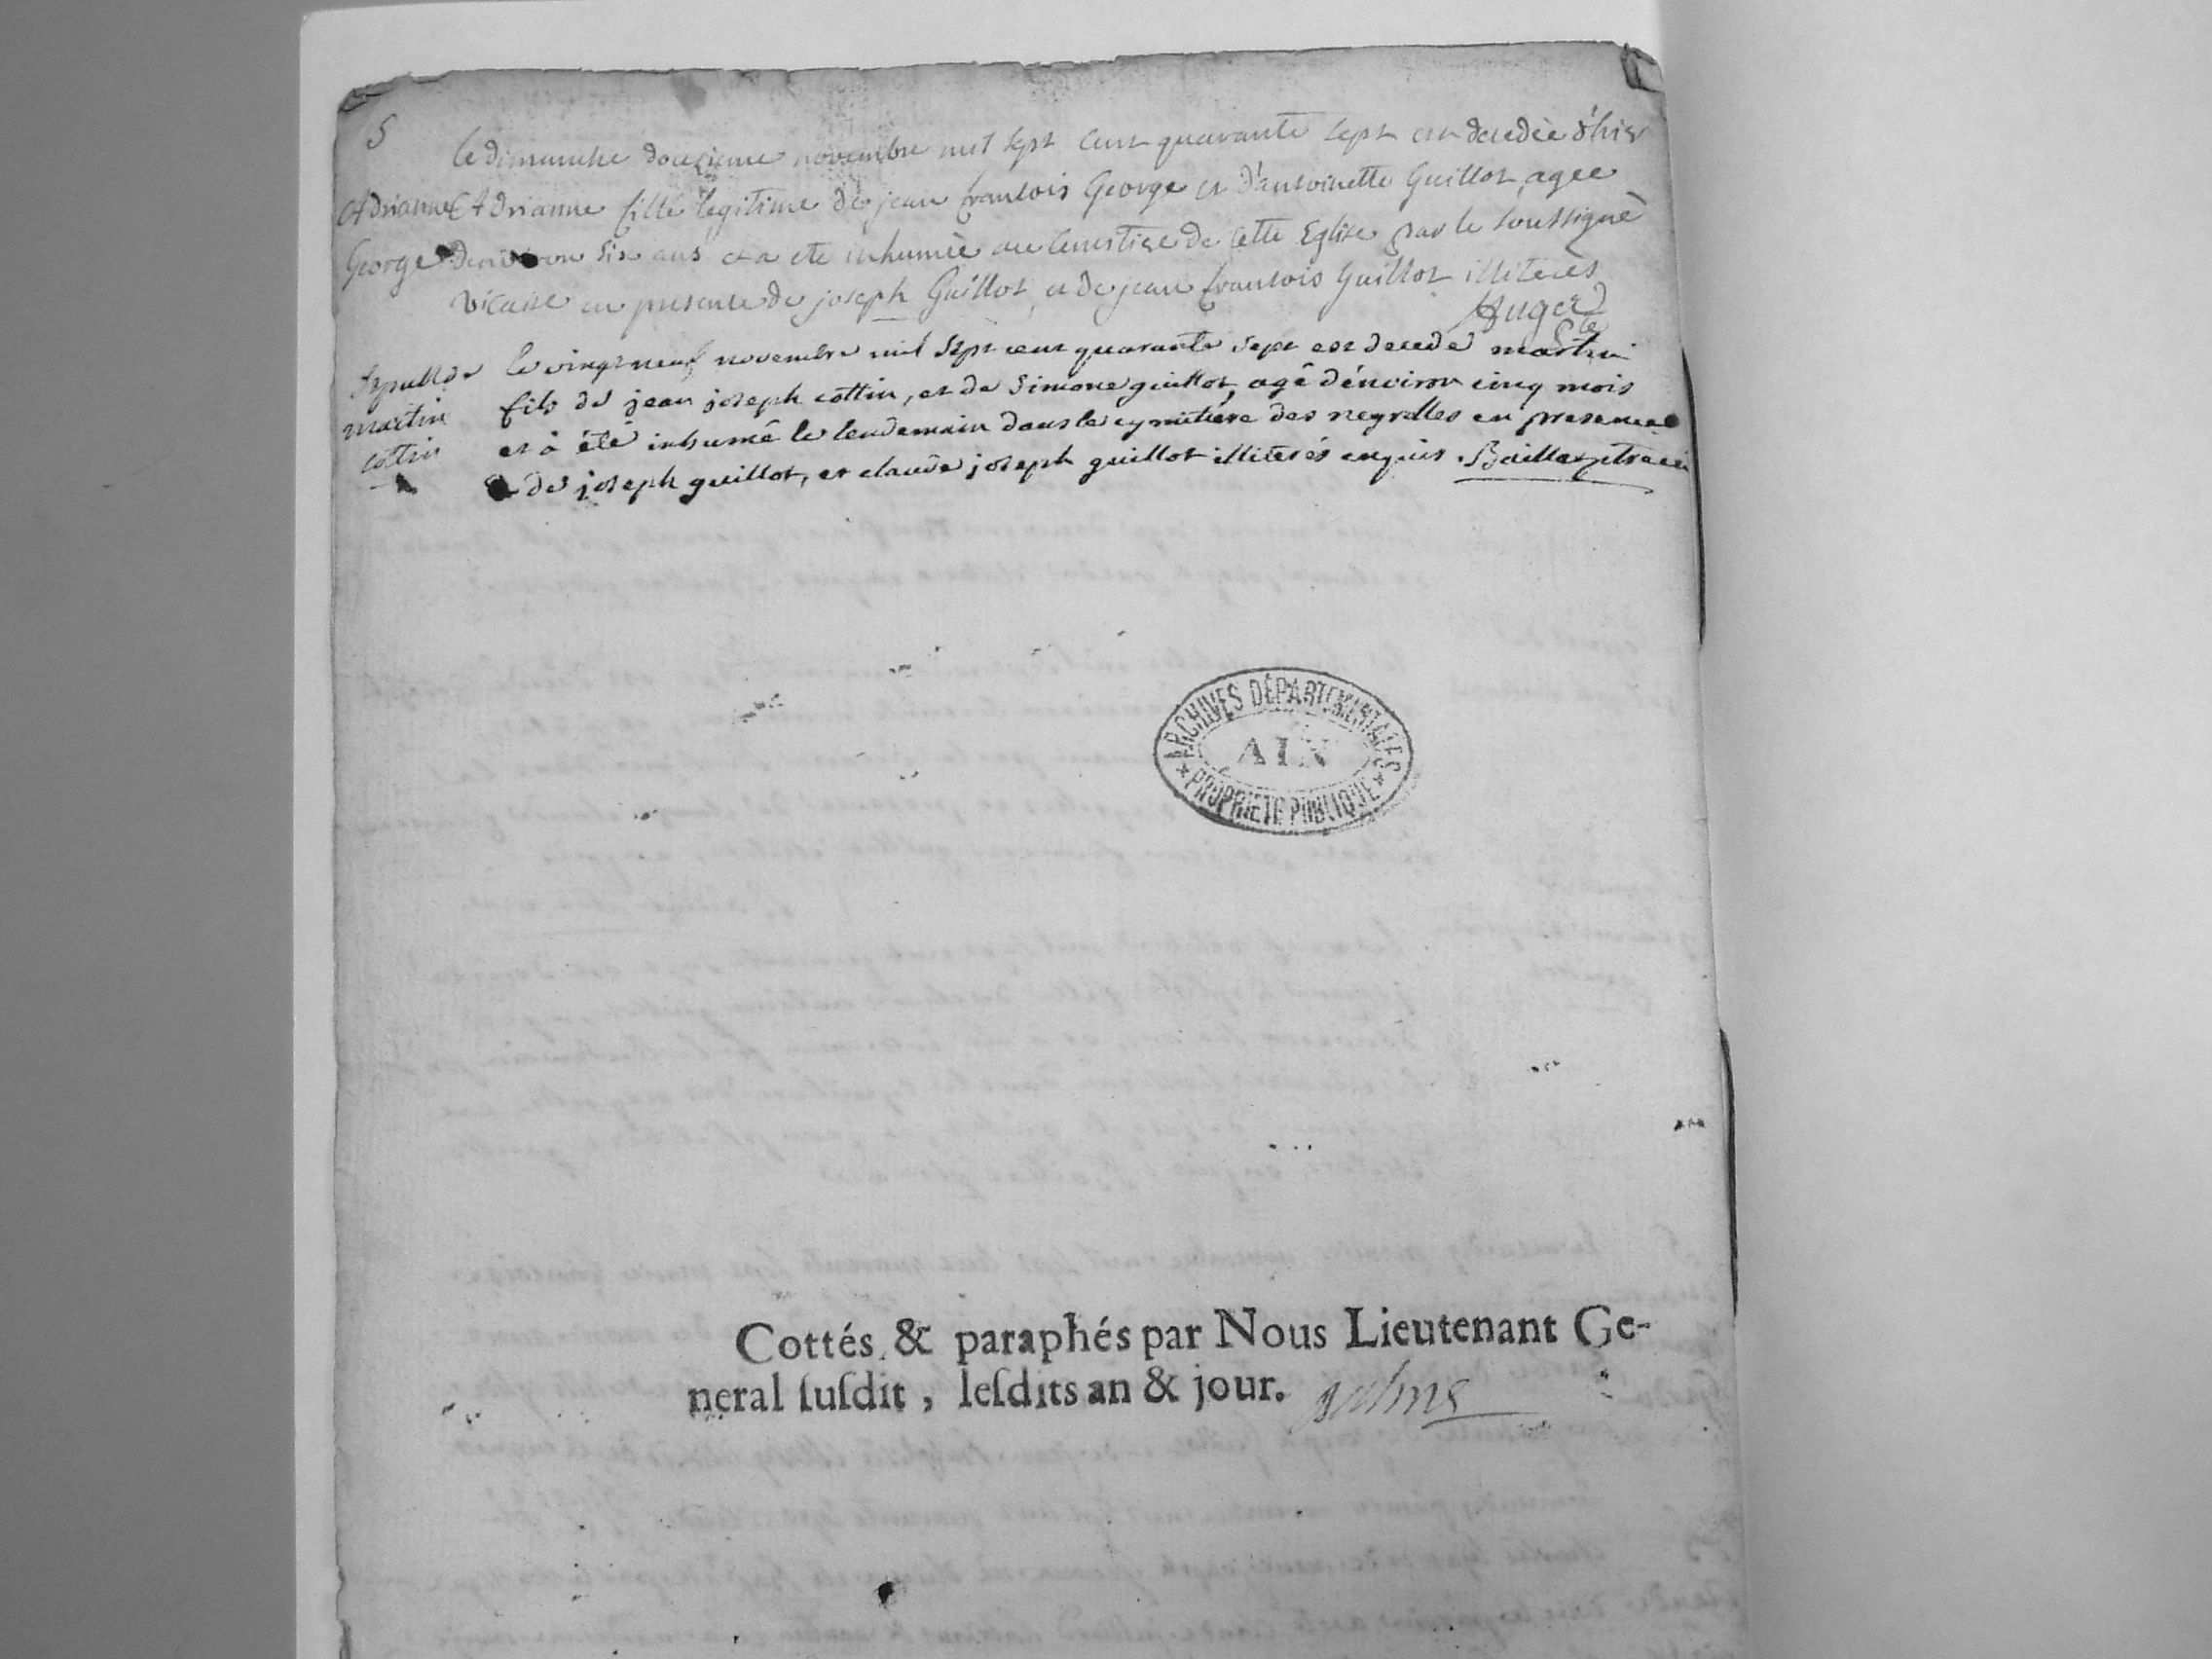 S
le dimanche douzieme novembre mil sept cent quarante sept est decedée d'hier
Adrianne Adrianne fille legitime de jean francois George et d'antoinette Guillot, agee
George d'environ six ans et a ete inhumée au cimetiere de cette Eglise par le soussigné
vicaire en presence de joseph Guillot, et de jean francois Guillot illiterés
Auger
Sepult de le vingt neuf novembre mil sept cent quarante sept est decedé martin
martin fils de jean joseph cottin, et de Simone guillot, agé d'environ cinq mois
cottin et à été inhumé le lendemain dans le cymitiere des neyrolles en presence
de joseph guillot, et claude joseph guillot illiterés enquis. Baillat
ARCHIVES DÉPARTEMENTALES
AIN
PROPRIÉTÉ PUBLIQUE
Cottés & paraphés par Nous Lieutenant Ge-
neral suſdit, leſdits an & jour.